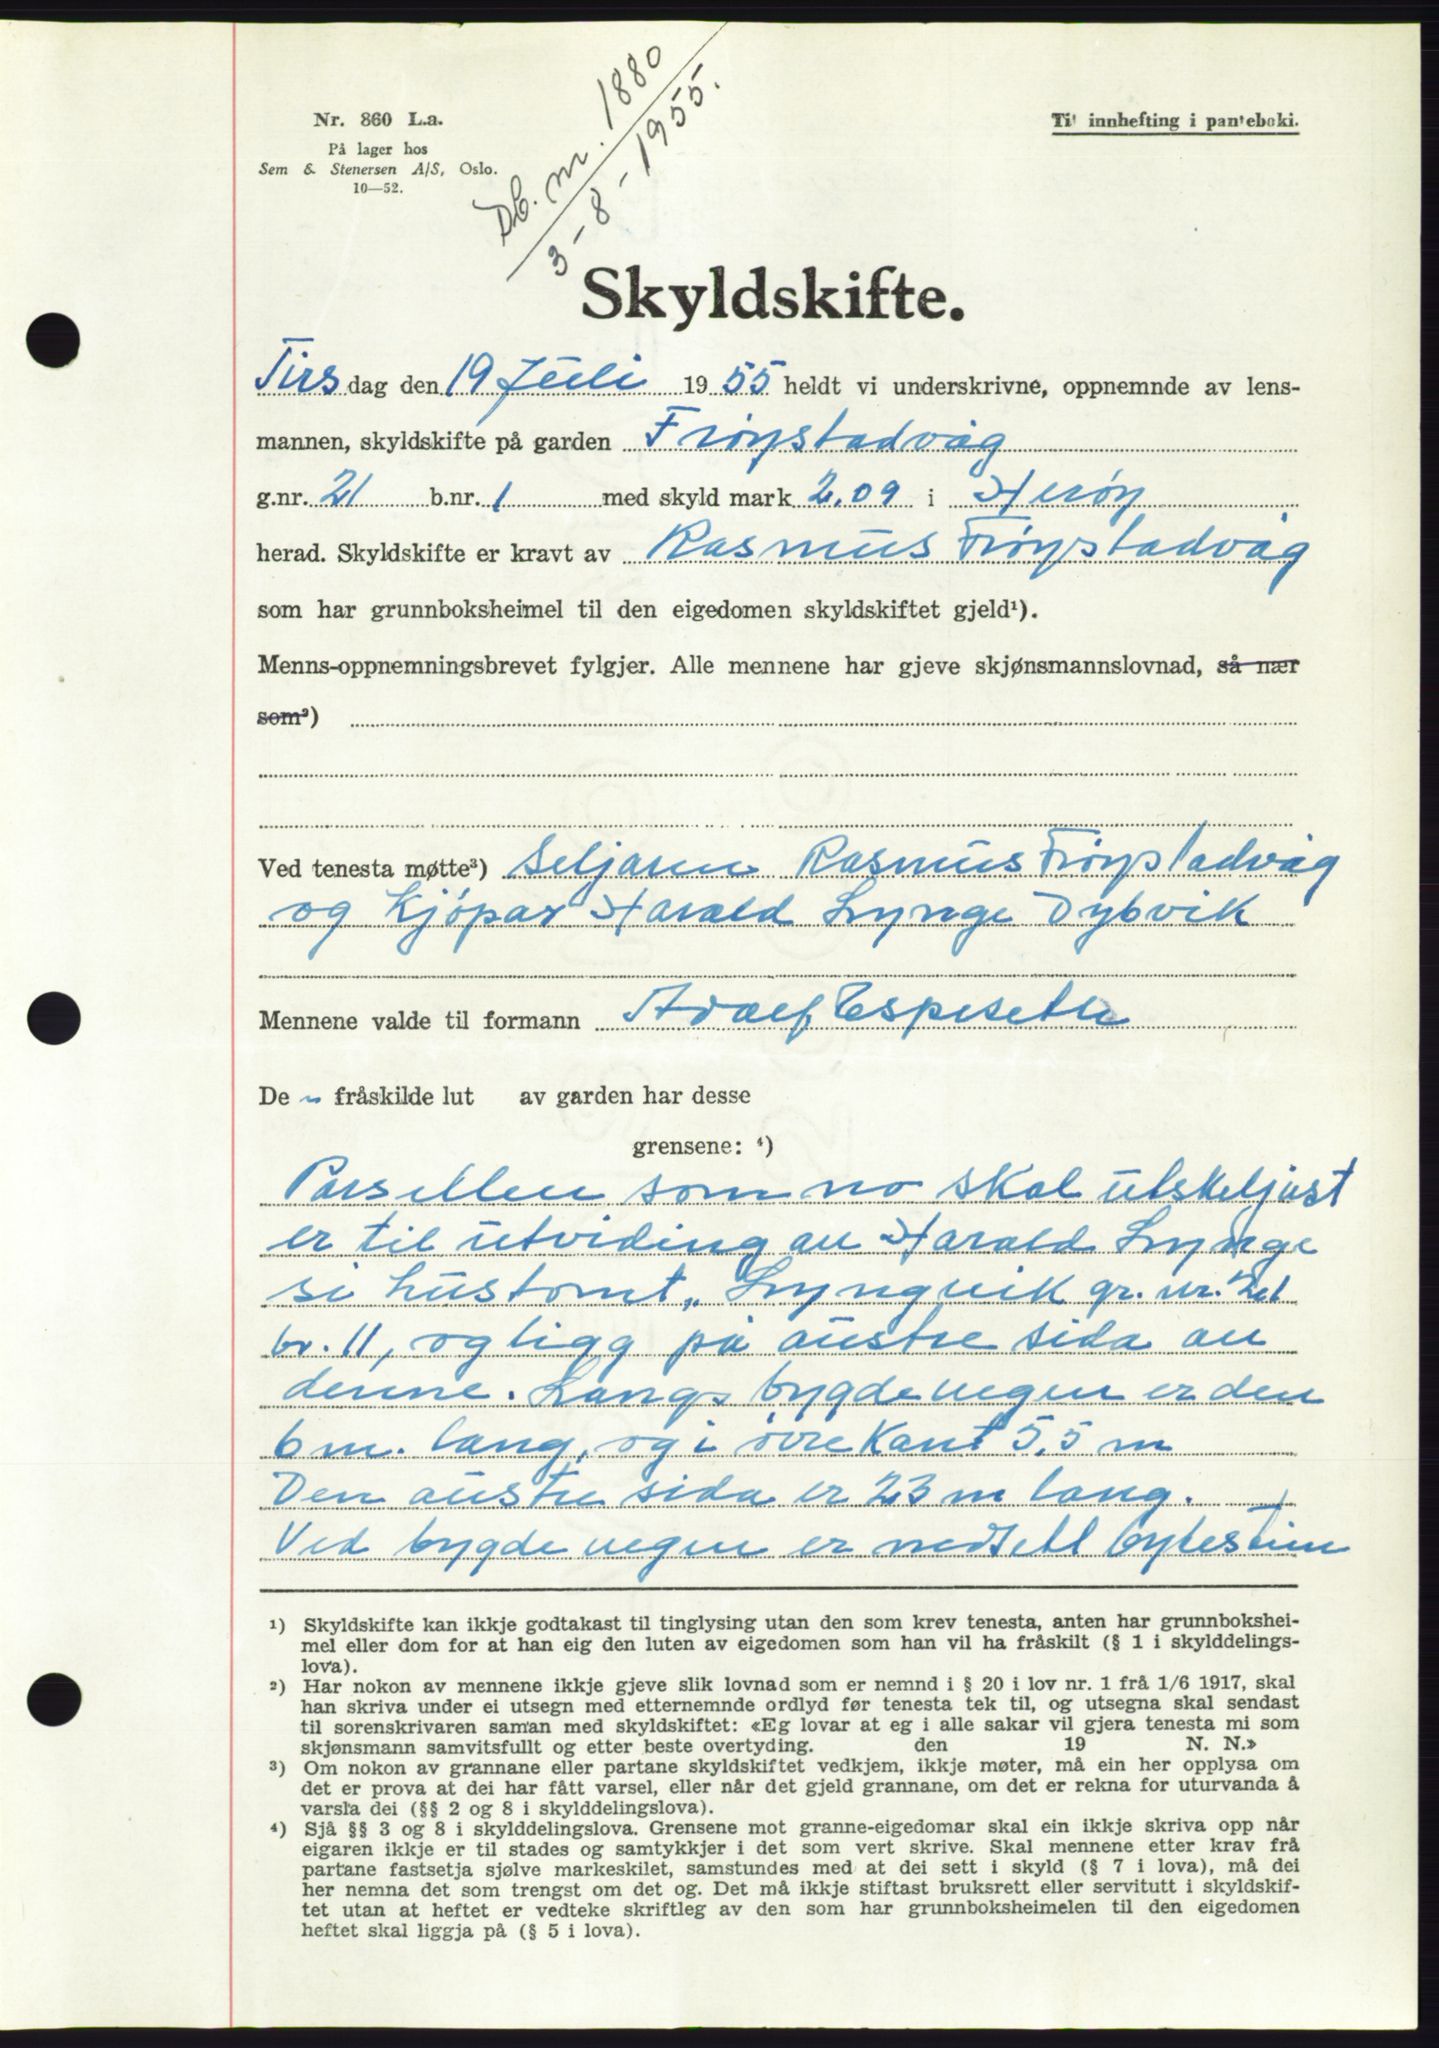 Nr. 860 L.a.
På lager hos
Sem & Stenersen A/S, Oslo.
10—52.
Db. nr. 1880
3 - 8 - 1955.
Til innhefting i panteboki.
Skyldskifte.
Tirsdag den 19 Juli 1955 heldt vi underskrivne, oppnemnde av lens-
mannen, skyldskifte på garden Frøystadvåg
g.nr. 21 b.nr. 1 med skyld mark 2,09 i Herøy
herad. Skyldskifte er kravt av Rasmus Frøystadvåg
som har grunnboksheimel til den eigedomen skyldskiftet gjeld¹).
Menns-oppnemningsbrevet fylgjer. Alle mennene har gjeve skjønsmannslovnad, så nær
som²)
Ved tenesta møtte³) Seljaren Rasmus Frøystadvåg
og Kjøpar Harald Lynge Dybvik
Mennene valde til formann Adolf Espeseth
De n fråskilde lut av garden har desse
grensene: ⁴)
Parsellen som no skal utskeljast
er til utviding au Harald Lynge
si hustomt „ Lyngvik gr. nr. 21
br. 11, og ligg på austre sida au
denne. Langs bygdevegen er den
6 m. lang, og i øvre Kant 5,5 m
Den austre sida er 23 m lang.
Ved bygdevegen er nedsett bytestein
¹) Skyldskifte kan ikkje godtakast til tinglysing utan den som krev tenesta, anten har grunnbokshei-
mel eller dom for at han eig den luten av eigedomen som han vil ha fråskilt (§ 1 i skylddelings-
lova).
²) Har nokon av mennene ikkje gjeve slik lovnad som er nemnd i § 20 i lov nr. 1 frå 1/6 1917, skal
han skriva under ei utsegn med etternemnde ordlyd før tenesta tek til, og utsegna skal sendast
til sorenskrivaren saman med skyldskiftet: «Eg lovar at eg i alle sakar vil gjera tenesta mi som
skjønsmann samvitsfullt og etter beste overtyding. den 19 N. N.»
³) Om nokon av grannane eller partane skyldskiftet vedkjem, ikkje møter, må ein her opplysa om
det er prova at dei har fått varsel, eller når det gjeld grannane, om det er rekna for uturvanda å
varsla dei (§§ 2 og 8 i skylddelingslova).
⁴) Sjå §§ 3 og 8 i skylddelingslova. Grensene mot granne-eigedomar skal ein ikkje skriva opp når
eigaren ikkje er til stades og samtykkjer i det som vert skrive. Skal mennene etter krav frå
partane fastsetja sjølve markeskilet, samstundes med at dei sett i skyld (§ 7 i lova), må dei
her nemna det som trengst om det og. Det må ikkje stiftast bruksrett eller servitutt i skyldskif-
tet utan at heftet er vedteke skriftleg av den som har grunnboksheimelen til den eigedomen
heftet skal liggja på (§ 5 i lova).